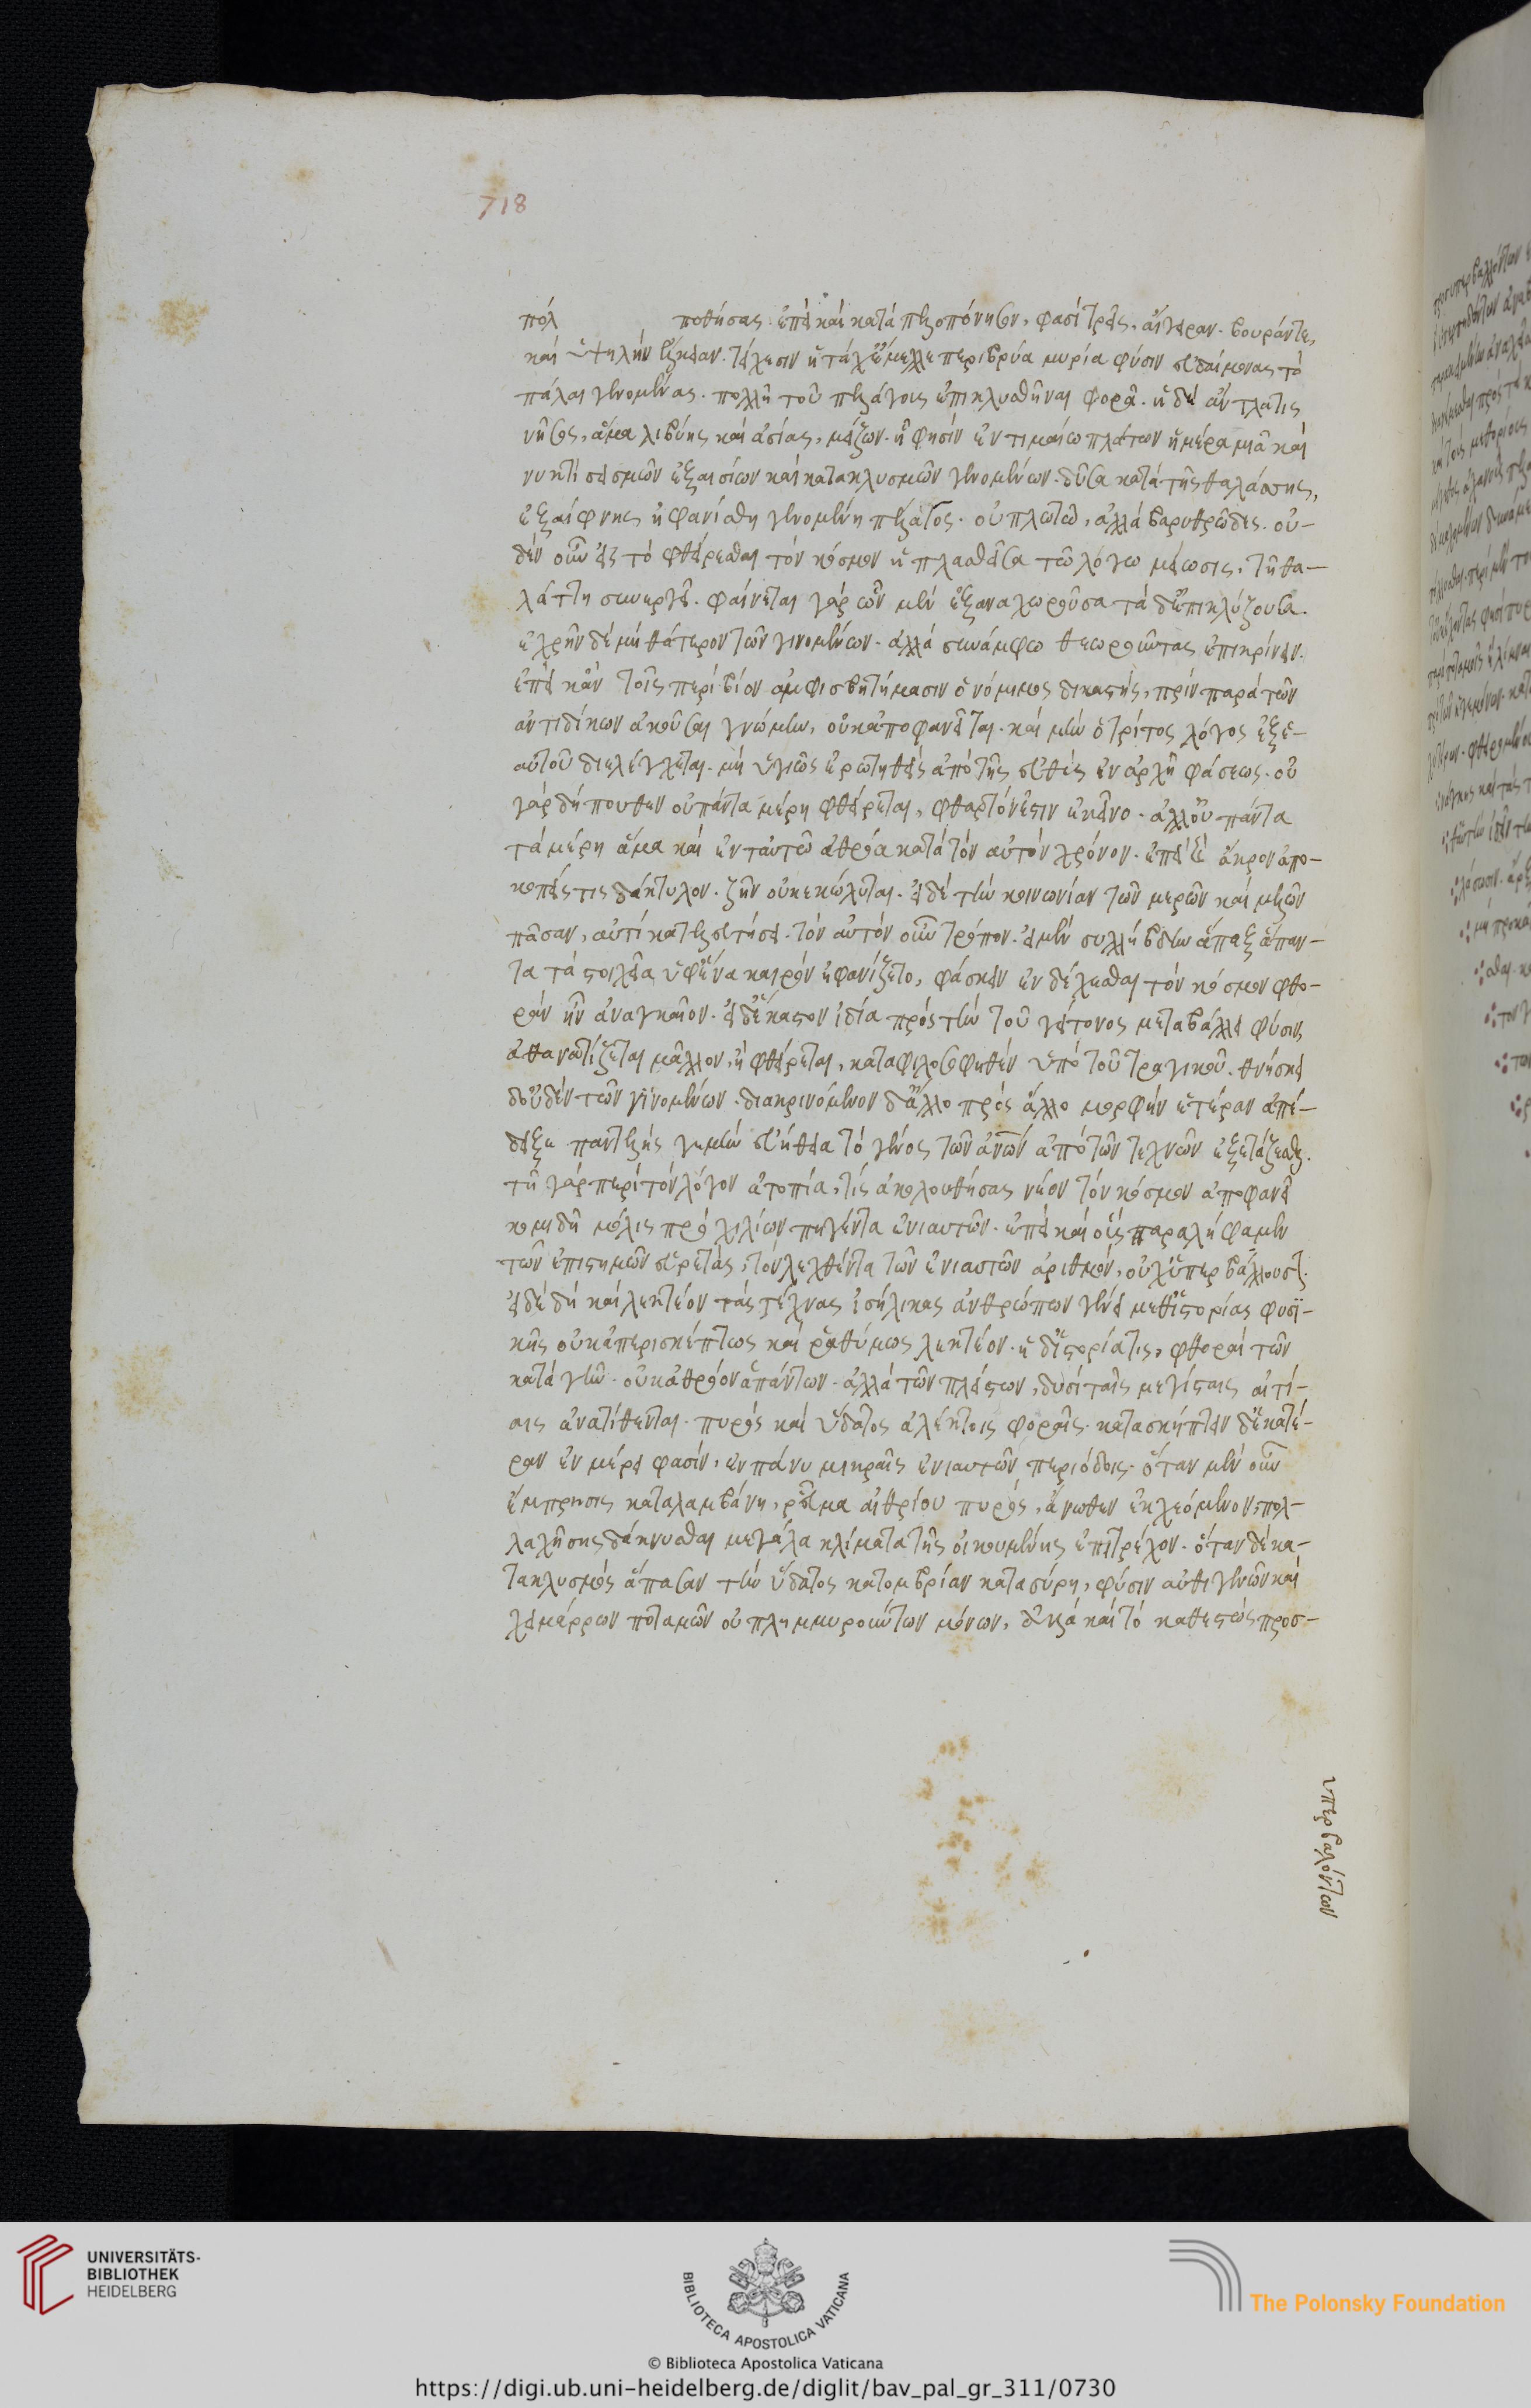 718
πόλ ποθήσας. ἐπεὶ καὶ κατὰ πελοπόννησον, φασὶ τρεῖς, αἴγειραν. βουράν τε,
καὶ ὑψηλὴν ἑλίκειαν. τείχεσιν ἣ τάχ' ἔμελλε περὶ βρύα μυρία φύσιν εὐδαίμονας τὸ
πάλαι γενομένας. πολλῆ τοῦ πελάγους ἐπικλυσθῆναι φορᾶ. ἡ δὲ ἀντλατὶς
νῆσος, ἅμα λιβύης καὶ ἀσίας, μείζων. ἧ φησὶν ἐν τιμαίω πλάτων ἡμέρα μιᾶ καὶ
νυκτὶ σεισμῶν ἐξαισίων καὶ κατακλυσμῶν γενομένων. δῦσα κατὰ τῆς θαλάσσης,
ἐξαίφνης ἠφανίσθη γενομένη πέλαγος. οὐ πλωτὸν, ἀλλὰ βαραθρῶδες. οὐ-
δὲν οὖν εἰς τὸ φθείρεσθαι τὸν κόσμον ἡ πλασθεῖσα τῶ λόγω μείωσις, τῆ θα-
λάττη συνεργεῖ. φαίνεται γὰρ ὧν μὲν ἐξαναχωροῦσα τὰ δ' ἐπικλύζουσα.
ἐχρῆν δὲ μὴ θάτερον τῶν γινομένων. ἀλλὰ συνάμφω θεωροῦντας ἐπικρίνειν.
ἐπεὶ κἂν τοῖς περὶ βίον ἀμφισβητήμασιν ὁ νόμιμος δικαστὴς, πρὶν παρὰ τῶν
ἀντιδίκων ἀκοῦσαι γνώμην, οὐκ ἀποφανεῖται. καὶ μὴν ὁ τρίτος λόγος ἐξ ἑ-
αυτοῦ διελέγχεται. μὴ ὑγιῶς ἐρωτηθεὶς ἀπὸ τῆς εὐθὺς ἐν ἀρχῆ φάσεως. οὐ
γὰρ δήπουθεν οὗ πάντα μέρη φθείρεται, φθαρτόν ἐστιν ἐκεῖνο. ἀλλ' οὗ πάντα
τὰ μέρη ἅμα καὶ ἐν ταυτῶ ἀθρόα κατὰ τὸν αὐτὸν χρόνον. ἐπεὶ καὶ ἄκρον ἀπο-
κοπείς τις δάκτυλον. ζῆν οὐ κεκώλυται. εἰ δὲ τὴν κοινωνίαν τῶν μερῶν καὶ μελῶν
πᾶσαν, αὐτίκα τελευτήσει. τὸν αὐτὸν οὖν τρόπον. εἰ μὲν συλλήβδην ἅπαξ ἅπαν-
τα τὰ στοιχεῖα ὑφ' ἕνα καιρὸν ἠφανίζετο, φάσκειν ἐνδέχεσθαι τὸν κόσμον φθο-
ρὰν ἦν ἀναγκαῖον. εἰ δ' ἕκαστον ἰδία πρὸς τὴν τοῦ γείτονος μεταβάλλει φύσιν
ἀθανατίζεται μᾶλλον, ἢ φθείρεται, κατα φιλοσοφηθὲν ὑπὸ τοῦ τραγικοῦ. θνήσκει
δ' οὐδὲν τῶν γινομένων. διακρινόμενον δ' ἄλλο πρὸς ἄλλο μορφὴν ἑτέραν ἀπέ-
δειξε παντελής γε μὴν εὐήθεια τὸ γένος τῶν ἀνων ἀπὸ τῶν τεχνῶν ἐξετάζεσθαι.
τῆ γὰρ περὶ τὸν λόγον ἀτοπία, τὶς ἀκολουθήσας νέον τὸν κόσμον ἀποφανεῖ
κομιδῆ μόλις πρὸ χιλίων παγέντα ἐνιαυτῶν. ἐπεὶ καὶ οὓς παραλήφαμεν
τῶν ἐπιστημῶν εὑρετὰς, τὸν λεχθέντα τῶν ἐνιαυτῶν ἀριθμὸν, οὐχ ὑπερβάλλουσι.
εἰ δὲ δὴ καὶ λεκτέον τὰς τέχνας ἰσήλικας ἀνθρώπων γένει μεθ' ἱστορίας φυσι-
κῆς οὐκ ἀπερισκέπτως καὶ ραθύμως λεκτέον. ἡ δ' ἱστορία τίς, φθοραὶ τῶν
κατὰ γῆν. οὐκ ἀθρόον ἁπάντων. ἀλλὰ τῶν πλείστων, δυσὶ ταῖς μεγίσταις αἰτί-
αις ἀνατίθενται. πυρὸς καὶ ὕδατος ἀλέκτοις φοραῖς. κατασκήπτειν δ' ἑκατέ-
ραν ἐν μέρει φασὶν, ἐν πάνυ μακραῖς ἐνιαυτῶν περιόδοις. ὅταν μὲν οὖν
ἔμπρησις καταλαμβάνη, ρεῦμα αἰθρίου πυρὸς, ἄνωθεν ἐκχεόμενον, πολ-
λαχῆ σκεδάννυσθαι μεγάλα κλίματα τῆς οἰκουμένης ἐπιτρέχον. ὅταν δὲ κα-
τακλυσμὸς ἅπασαν τὴν ὕδατος κατομβρίαν κατασύρη, φύσιν αὐθιγενῶν καὶ
χειμάρρων ποταμῶν οὐ πλημμυρούντων μόνων, ἀλλὰ καὶ τὸ καθεστὼς προσ-
υπερβαλόντων
UNIVERSITÄTS-
BIBLIOTHEK
HEIDELBERG
BIBLIOTECA APOSTOLICA VATICANA
The Polonsky Foundation
© Biblioteca Apostolica Vaticana
https://digi.ub.uni-heidelberg.de/diglit/bav_pal_gr_311/0730